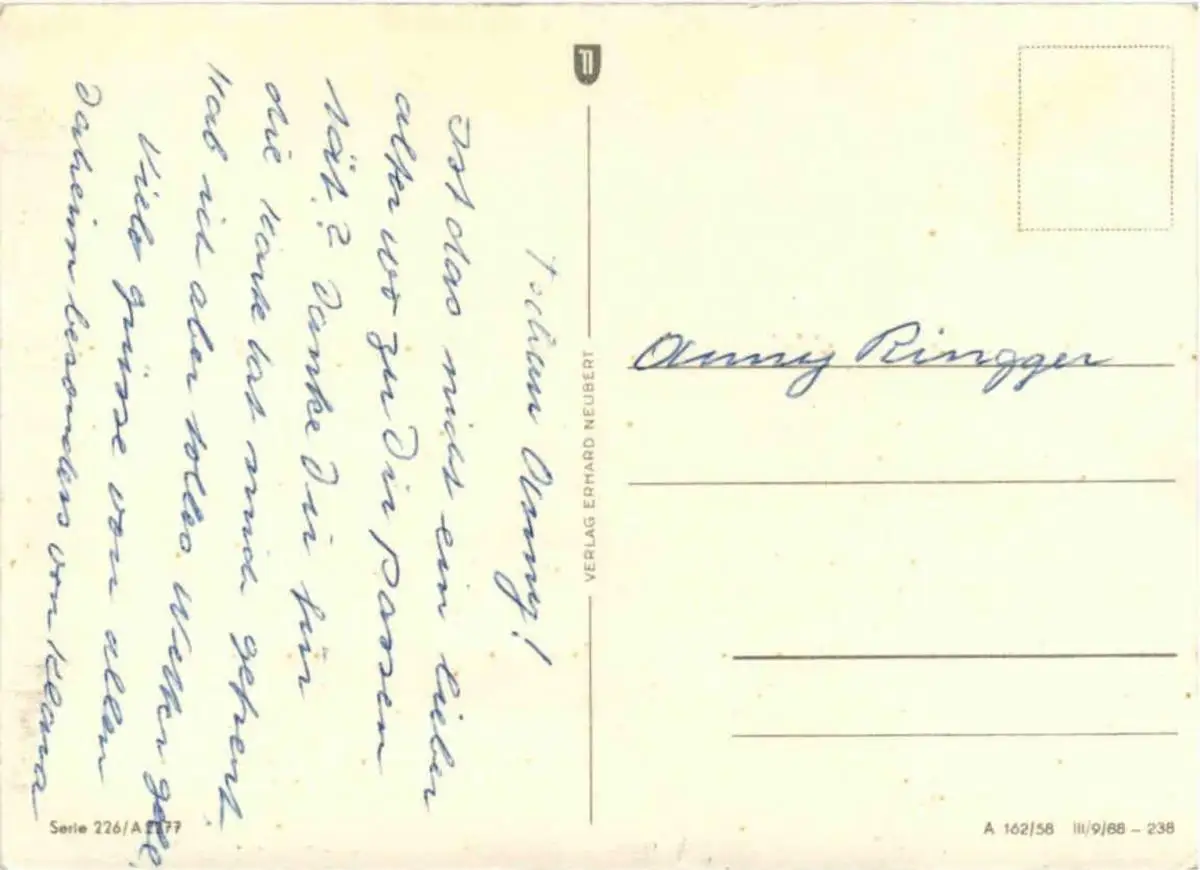 Tschau Anny!
Ist das nicht ein lieber
alter wo zu Dir passen
tät? Danke Dir für
die Karte hat mich gefreut
Hab ich aber tolles Wetter gell
Viele grüsse von allen
Daheim besonders von Klara
VERLAG ERHARD NEUBERT
Anny Ringger
Serie 226/A 2277
A 162/58 III/9/88 – 238